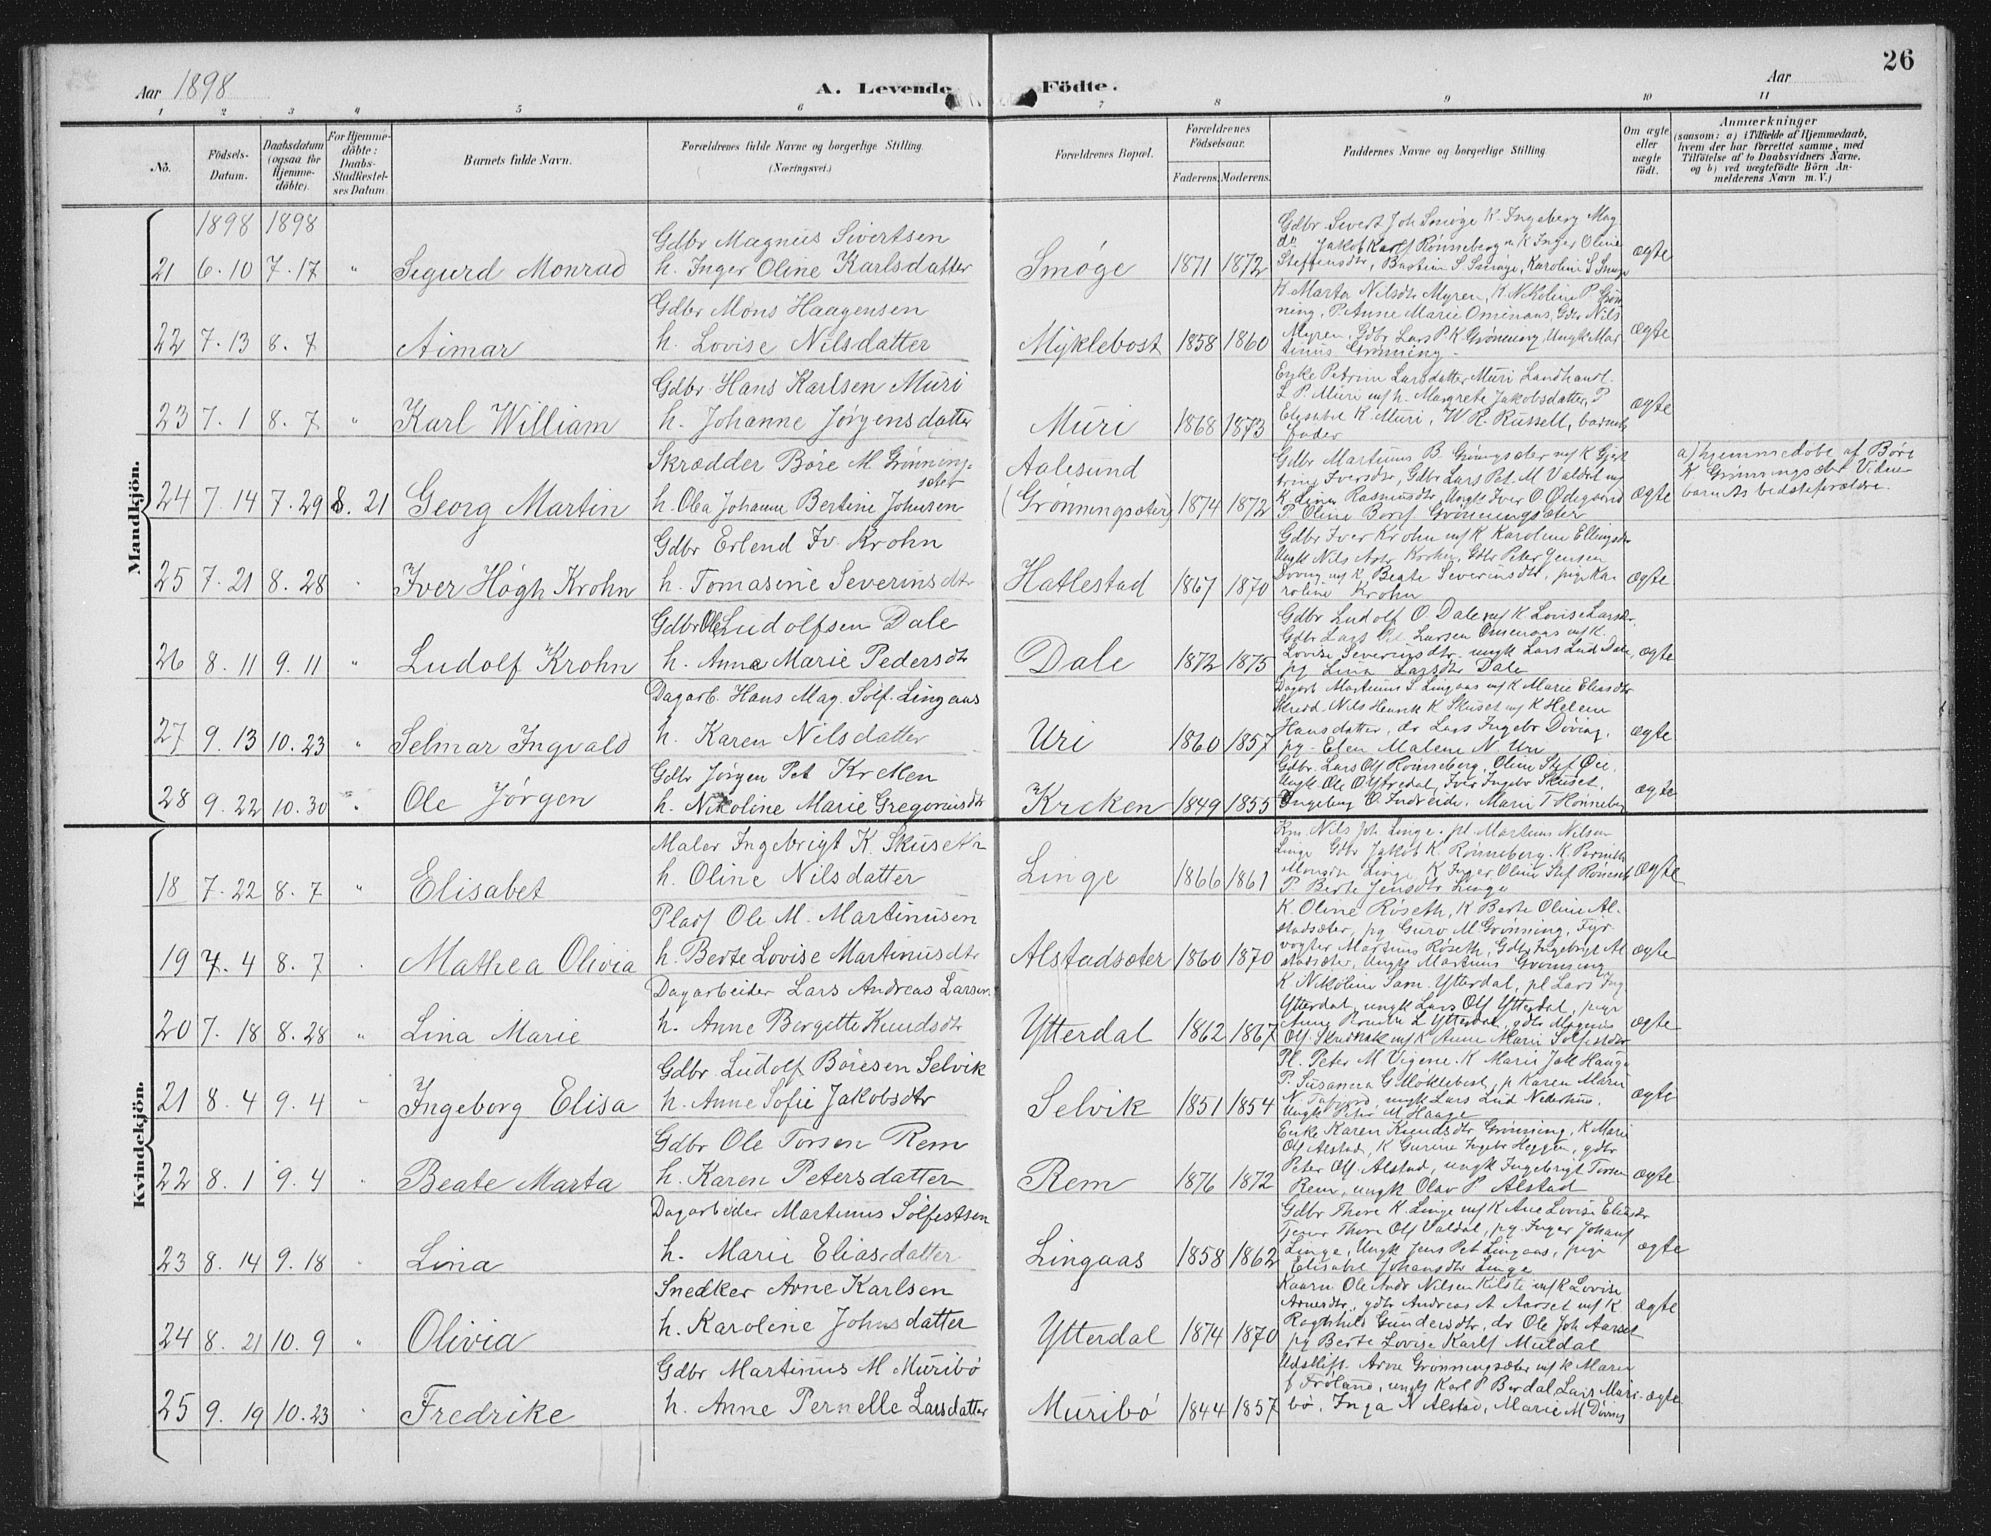 26
Aar 1898 A. Levende Födte. Aar
1 2 3 4 5 6 7 8 9 10 11
No.
Födsels-Datum.
Daabsdatum (ogsaa for Hjemme-döbte).
For Hjemme-döbte: Daabs-Stadfæstel-ses Datum.
Barnets fulde Navn.
Forældrenes fulde Navne og borgerlige Stilling. (Næringsvei.)
Forældrenes Bopæl.
Forældrenes Födselsaar.
Faderens. Moderens.
Faddernes Navne og borgerlige Stilling
Om ægte eller uægte födt.
Anmærkninger
(saasom: a) i Tilfælde af Hjemmedaab,
hvem der har forrettet samme, med
Tilföielse af to Daabsvidners Navne,
og b) ved uægtefödte Börn An-
melderens Navn m. V.)
Mandkjön.
1898 1898
Gdbr Magnus Sivertsen
21 6.10 7.17 " Sigurd Monrad h. Inger Oline Karlsdatter Smøge 1871 1872 ægte
Gdbr Sivert Joh Smøge K. Ingeberg Mag
Jakob Karlf Rønneberg K Inger Oline
Steffensdtr, Bastian S Smøge, Karoline S Smøge
Gdbr Mons Haagensen
22 7.13 8.7 Aimar h. Lovise Nilsdatter Myklebost 1858 1860 ægte
K Marta Nilsdtr Myren, K Nikoline P Grøn
ning, P. Anne Marie Omenaas, Gdbr Nils
Myren, Gdbr Lars P. K Grønning, Ungk Mar
tinus Grønning
Gdbr. Hans Karlsen Muri
23 7.1 8.7 " Karl William h. Johanne Jørgensdatter Muri 1868 1873 ægte
Enke Petrine Larsdatter Muri Landhandl.
L P. Muri m/h. Margrete Jakobsdatter, P
Elisabet K. Muri, W. R. Russell, barnets
fader
Skrædder Böre M Grønning-
sæter
24 7.14 7.29 8.21 Georg Martin h. Olea Johanne Bertine Johnsen Aalesund (Grønningsæter) 1874 1872 ægte
Gdbr Martinus B. Grøngsæter m/K
trine Iversdtr, Gdbr Lars Pet. M Valdal m/
K Lina Rasmusdtr, Ungk Iver O Ødegaard
P Oline Borsf Grønningsæter
a) hjemmedöbt af Böre
K Grønningsæter Vidner
barnets bedsteforældre.
Gdbr Erlend Iv. Krohn
25 7.21 8.28 " Iver Høgh Krohn h. Tomasine Severinsdtr Hatlestad 1867 1870 ægte
Gdbr Iver Krohn m/K Karoline Ellingsdr
Ungk Nils Krohn, Gdbr Peter Jensen
Døving m/K Beate Severinsdtr, pige Ka
roline Krohn
Gdbr Ole Ludolfsen Dale
26 8.11 9.11 " Ludolf Krohn h. Anna Marie Pedersdtr Dale 1872 1875 ægte
Gdbr Ludolf O. Dale m/K Lovise Larsdr,
Gdbr Lars Larsen Omenaas m/K.
Lovise Severinsdtr. ungk Lars Lud Dale,
pg Lina Larsdtr Dale
Dagarb. Hans Mag. Solf. Lingaas
27 9.13 10.23 " Selmar Ingvald h. Karen Nilsdatter Uri 1860 1857 ægte
Dagarb Martinus S Lingaas m/K Marie Eliasdtr
Skrædd. Nils Henrik K Skuset m/K Helene
Hansdatter, dr Lars Ingebr Døving,
pg. Elen Malene N. Uri
Gdbr Jørgen Pet Krcken
28 9.22 10.30 " Ole Jørgen h. Nikoline Marie Gregoriusdtr Krcken 1849 1855 ægte
Gdbr. Lars Olf Rønneberg, Oline Stef Øie,
Ungk Ole O Ytredal, Iver Ingebr Skuset,
Ingeborg O. Indreide, Marie T Rønneberg
Kvindekjön.
Maler Ingebrigt K. Skuseth
18 7.22 8.7 " Elisabet h. Oline Nilsdatter Linge 1866 1861 ægte
Km Nils Joh Linge. pl. Martinus Nilsen
Linge Gdbr Jakob K. Rønneberg. K. Pernille
Linge, K Inger Oline Stef Rønneb
P. Berte Jensdtr Linge
Pladf Ole M. Martinusen
19 7.4 8.7 Mathea Olivia h. Berte Lovise Martinusdtr Alstadsæter 1860 1870 ægte
K. Oline Røseth, K Berte Oline Al-
stadsæter, pg Guro M Grønning, Fyr
vogter Martinus Røseth, Gdbr Ingebrigt Al
stadsæter, Ungk Martinus Grønning
Dagarbeider Lars Andreas Larsen
20 7.18 8.28 " Lina Marie h. Anne Bergitte Knudsdtr Ytterdal 1862 1867 ægte
K Nikoline Sam. Ytterdal, pl Lars Ing
Ytterdal, ungk Lars Olf Ytterdal, pige
Anne L Ytterdal, gdbr Magnus
Olf. m/K Anne Marie Solfestdtr
Gdbr. Ludolf Böiesen Selvik
21 8.4 9.4 Ingeborg Elisa h. Anne Sofie Jakobsdtr Selvik 1851 1854 ægte
Pl. Peter M Vigene. K Marie Jak Hauge
P. Susanna G Möklebost, p Karen Marie
N Tafjord, ungk Lars Lud Nederhus,
Ungk Peter M Hauge
Gdbr Ole Torsen Rem
22 8.1 9.4 Beate Marta h. Karen Petersdatter Rem 1876 1872 ægte
Enke Karen Knudsdtr Grønning, K Marie
Olf Alstad, K Gurine Ingebr Heggen, gdbr
Peter Olf. Alstad, ungk Ingebrigt Torsen
Rem, ungk Olav P. Alstad
Dagarbeider Martinus Solfestsen
23 8.14 9.18 Lina h. Marie Eliasdatter Lingaas 1858 1862 ægte
Gdbr Thore K. Linge m/K Ane Lovise Eliasdr
Thore Olf Valdal, pg. Inger Johanf
Linge, Ungk Jens Pet Lingaas, pige
Elisabet Johansdtr Linge
Snedker Arne Karlsen
24 8.21 10.9 " Olivia h. Karoline Johnsdatter Ytterdal 1874 1870 ægte
Kaarm Ole Andr Nilsen Kilsti m/K Lovise
Arnesdtr, gdbr Andreas A Aarset m/K
Ragnhild Gundersdtr, dr Ole Joh Aarset
pg Berte Lovise Karlf Muldal
Gdbr Martinus M Muribö
25 9.19 10.23 Fredrike h. Anne Pernelle Larsdatter Muribö 1844 1857 ægte
Udskift. Arne Grønningsæter m/K Maren
f Frøland, ungk Karl P Berdal, Lars Muri-
bö, Inga N Alstad, Marie M Døving